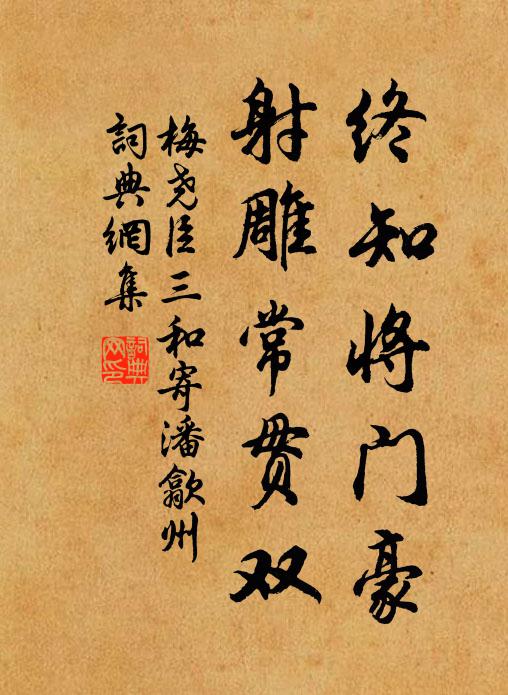 终知将门豪
射雕常贯双
梅尧臣三和寄潘歙州
詞典網集
詞典網印